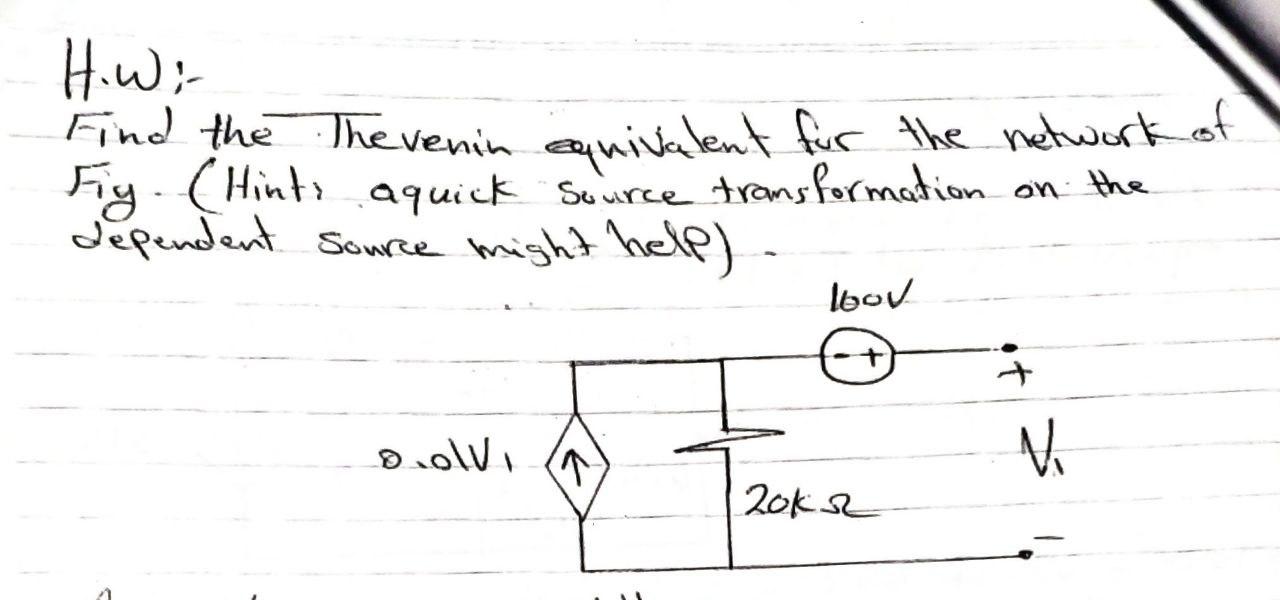 H.W:-
Find the Thevenin equivalent for the network of
Fig. (Hint: a quick source transformation on the
dependent source might help).
100V
- +
+
0.01V1
V1
20kΩ
-